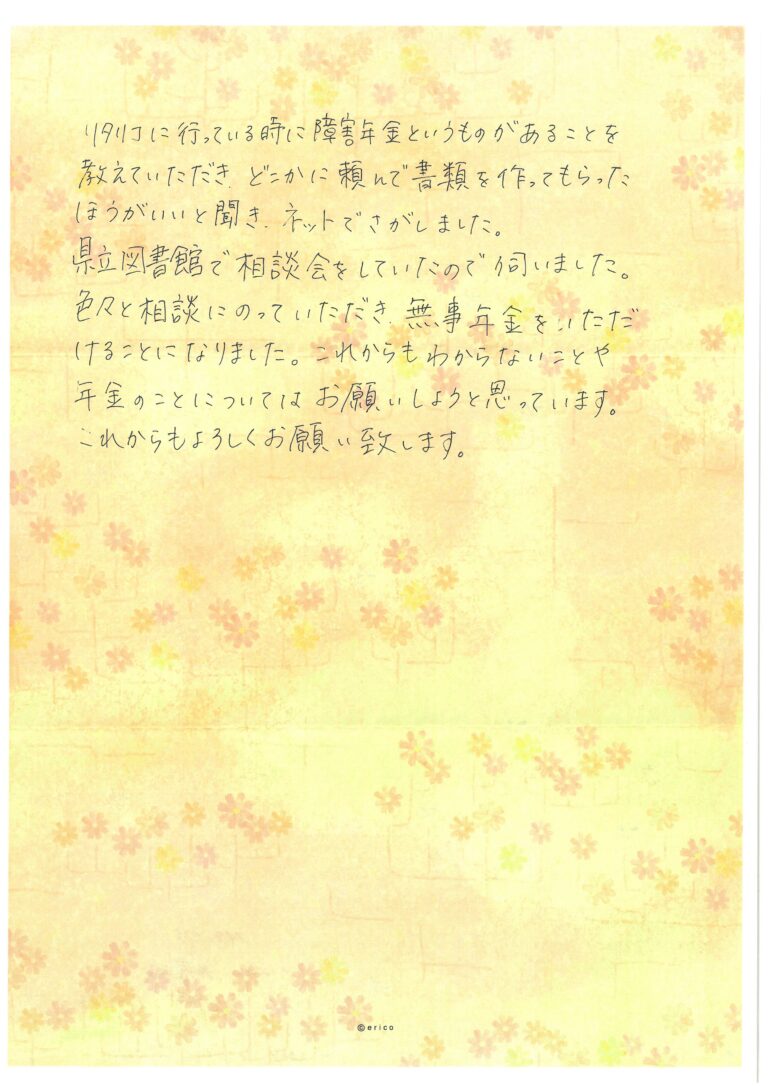 リタリコに行っている時に障害年金というものがあることを
教えていただき、どこかに頼んで書類を作ってもらった
ほうがいいと聞き、ネットでさがしました。
県立図書館で相談会をしていたので伺いました。
色々と相談にのっていただき、無事年金をいただ
けることになりました。これからもわからないことや
年金のことについてはお願いしようと思っています。
これからもよろしくお願い致します。
©erico